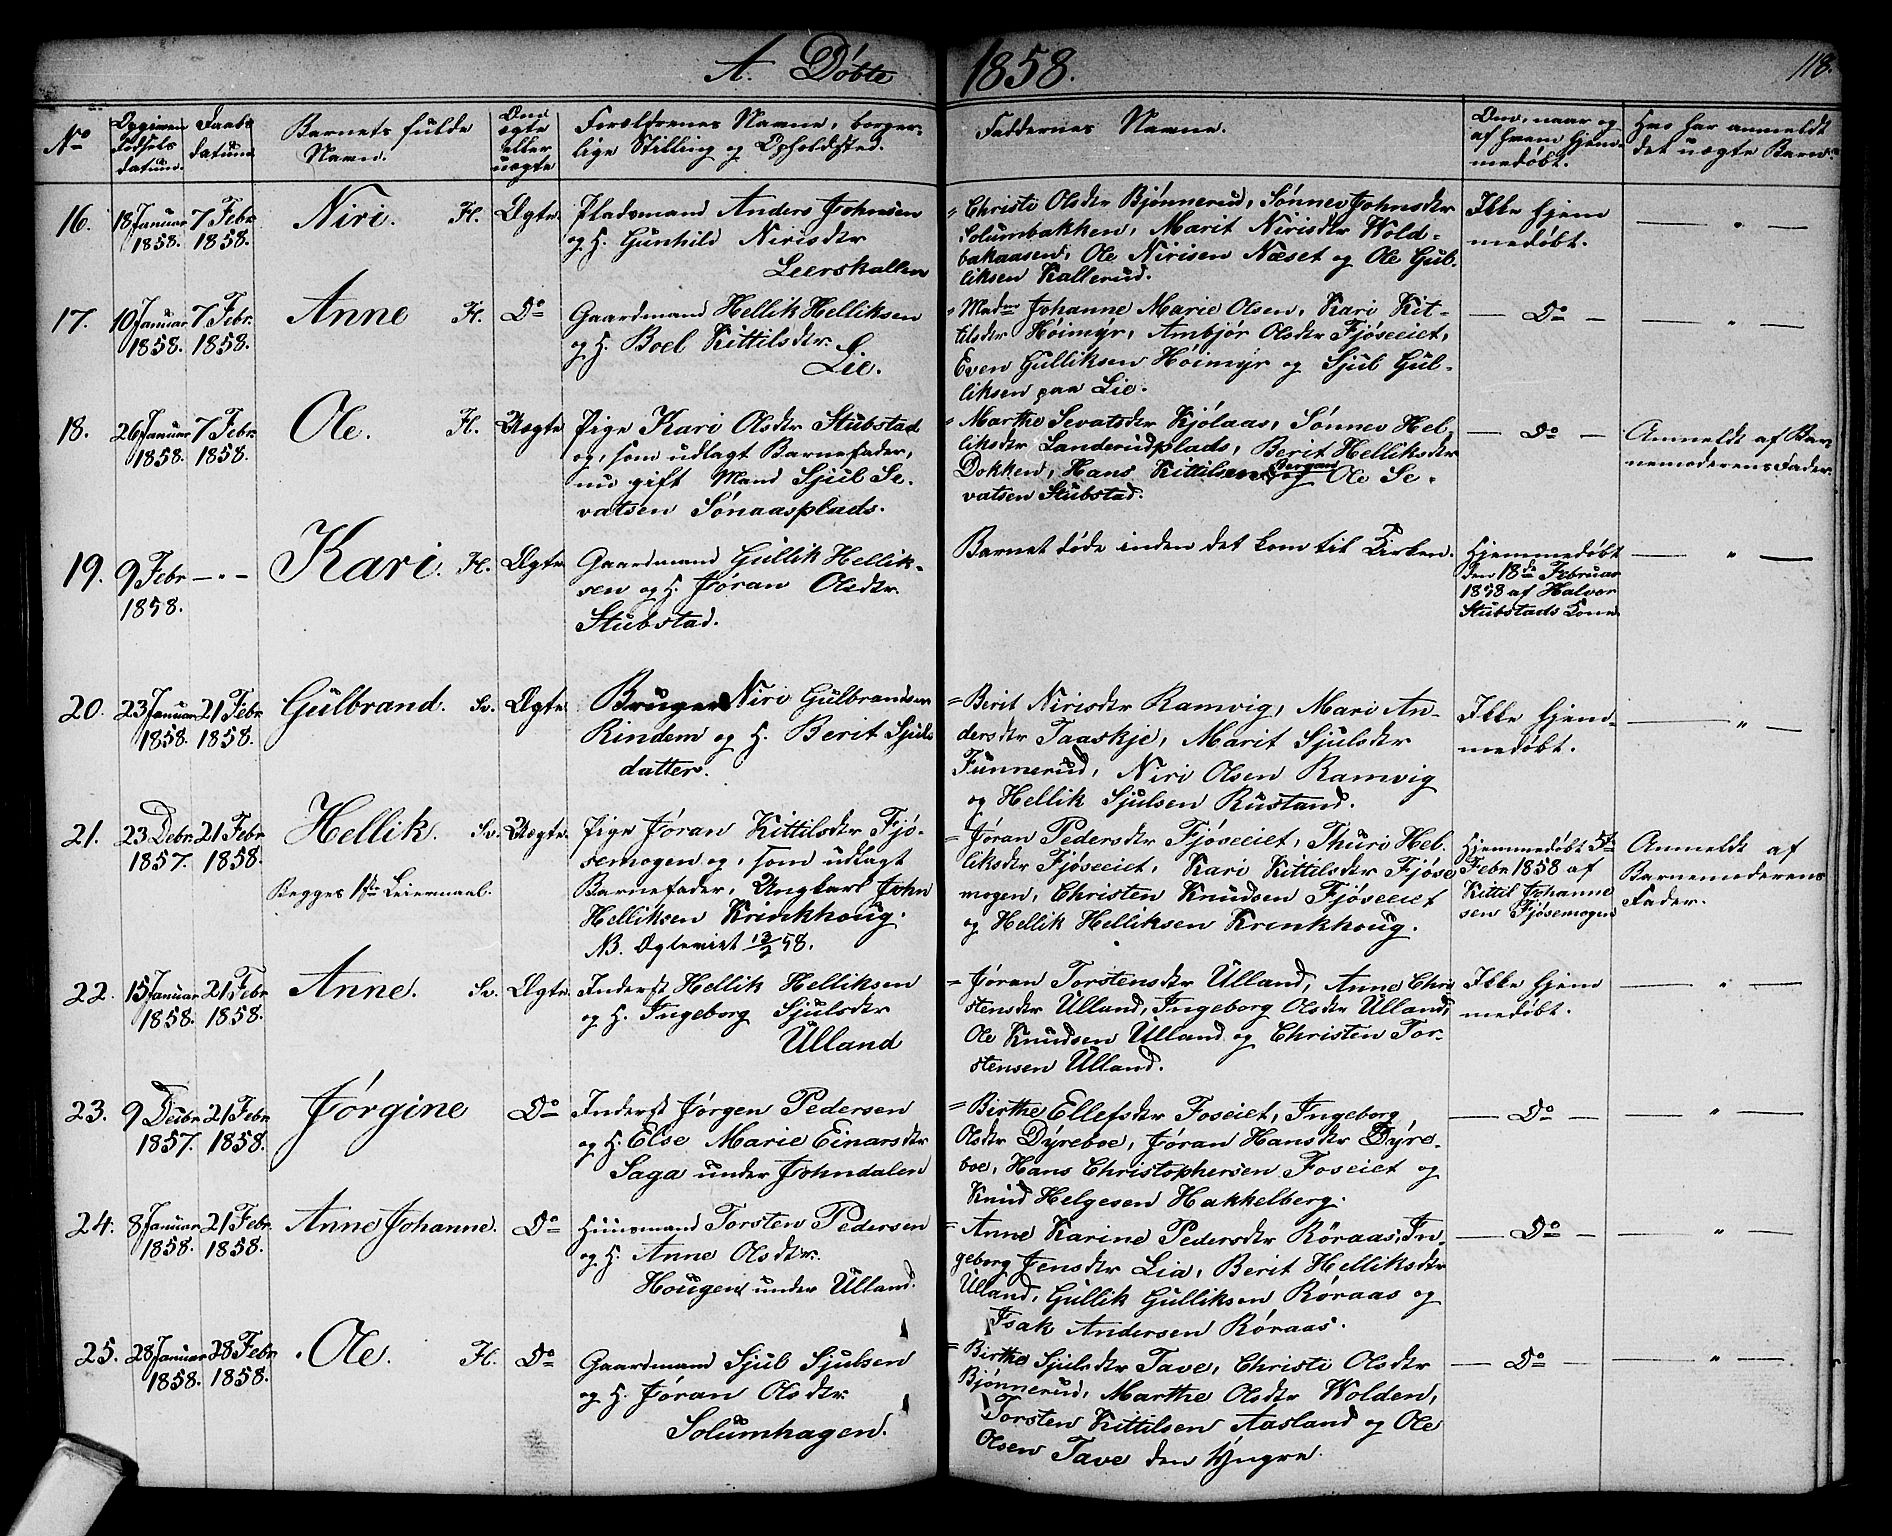 A. Døbte 1858. 118.
No
Opgiven Fødsels datum.
Daabsdatum.
Barnets fulde Navn.
Om ægte eller uægte
Forældrenes Navne, borgerlige Stilling og Opholdssted.
Faddernes Navne.
Om, naar og af hvem hjemmedøbt.
Hvo har anmeldt det uægte Barn.
16. 18 Januar 1858. 7 Febr. 1858. Niri. H. Ægte.
Pladsmand Anders Johnsen
og H. Gunhild Nirisdtr
Leerskallen
= Christi Olsdtr Bjønnerud, Sønnev Johnsdtr
Solumbakken, Marit Nirisdtr Wold-
bakaasen, Ole Nirisen Næset og Ole Gul-
liksen Kallerud.
Ikke hjem
medøbt.
— " —
17. 10 Januar 1858. 7 Febr. 1858. Anne H. Do
Gaardmand Hellik Helliksen
og H. Boel Kittilsdtr.
Lie.
= Madm Johanne Marie Olsen, Kari Kit-
tilsdtr Høimyr, Ambjør Olsdtr Fjøseeiet,
Even Gulliksen Høimyr og Sjul Gul-
liksen paa Lie.
— Do —
— " —
18. 26 Januar 1858. 7 Febr. 1858. Ole. H. Uægte
Pige Kari Olsdtr Stubstad
og, som udlagt Barnefader,
nu gift Mand Sjul Se-
vatsen Sønaasplads.
= Marthe Sevatsdtr Kjølaas, Sønnev Hel-
liksdtr Landerudplads, Berit Helliksdtr
Dokken, Hans Kittilsen Bergan og Ole Se-
vatsen Stubstad.
— Do —
Anmeldt af Bar-
nemoderens Fader.
19. 9 Febr 1858. — " — Kari. H. Ægte
Gaardmand Gullik Hellik-
sen og H. Jøran Olsdtr.
Stubstad.
Barnet døde inden det kom til Kirken.
Hjemmedøbt
den 18de Februar
1858 af Halvor
Stubstads Kone
— " —
20. 23 Januar 1858. 21 Febr 1858. Gulbrand. Sv. Ægte.
Bruger Niri Gulbrandsen
Rindem og H. Berit Sjuls
datter.
= Berit Nirisdtr Ramvig, Mari An-
dersdtr Taaskje, Marit Sjulsdtr
Funnerud, Niri Olsen Ramvig
og Hellik Sjulsen Rustand.
Ikke hjem-
medøbt.
— " —
21. 23 Debr. 1857. 21 Febr 1858. Hellik. Sv. Uægte.
Begges 1ste Leiermaal.
Pige Jøran Kittilsdtr Fjø-
semogen og, som udlagt
Barnefader, Ungkarl John
Helliksen Krinkhoug.
NB. Ægteviet 13/7 58.
= Jøran Pedersdtr Fjøseeiet, Thuri Hel-
liksdtr Fjøseeiet, Kari Kittilsdtr Fjøse
mogen, Christen Knudsen Fjøseeiet
og Hellik Helliksen Krinkhoug.
Hjemmedøbt 5te
Febr 1858 af
Kittil Johanne
sen Fjøsemogen
Anmeldt af
Barnemoderens
Fader.
22. 15 Januar 1858. 21 Febr 1858. Anne. Sv. Ægte.
Inderst Hellik Helliksen
og H. Ingeborg Sjulsdtr
Ulland
= Jøran Torstensdtr Ulland, Anne Chri-
stensdtr Ulland, Ingeborg Olsdtr Ulland,
Ole Knudsen Ulland og Christen Tor-
stensen Ulland.
Ikke hjem
medøbt.
— " —
23. 9 Decbr 1857. 21 Febr 1858. Jørgine Do
Inderst Jørgen Pedersen
og H. Else Marie Einarsdtr
Saga under Johndalen
= Birthe Ellefsdtr Foseiet, Ingeborg
Olsdtr Dyreboe, Jøran Hansdtr Dyre-
boe, Hans Christophersen Foseiet og
Knud Helgesen Hakkelberg.
— Do —
— " —
24. 8 Januar 1858. 21 Febr. 1858. Anne Johanne. Do
Huusmand Torsten Pedersen
og H. Anne Olsdtr.
Hougen under Ulland.
= Anne Karine Pedersdtr Røraas, In-
geborg Jensdtr Lia, Berit Helliksdtr
Ulland, Gullik Gulliksen Røraas og
Isak Andersen Røraas.
— Do —
— " —
25. 28 Januar 1858. 28 Febr. 1858. Ole. H. Do
Gaardmand Sjul Sjulsen
og H. Jøran Olsdtr.
Solumhagen.
= Birthe Sjulsdtr Tave, Christi Olsdtr
Bjønnerud, Marthe Olsdtr Wolden,
Torsten Kittilsen Aasland og Ole
Olsen Tave den Yngre.
— Do —
— " —